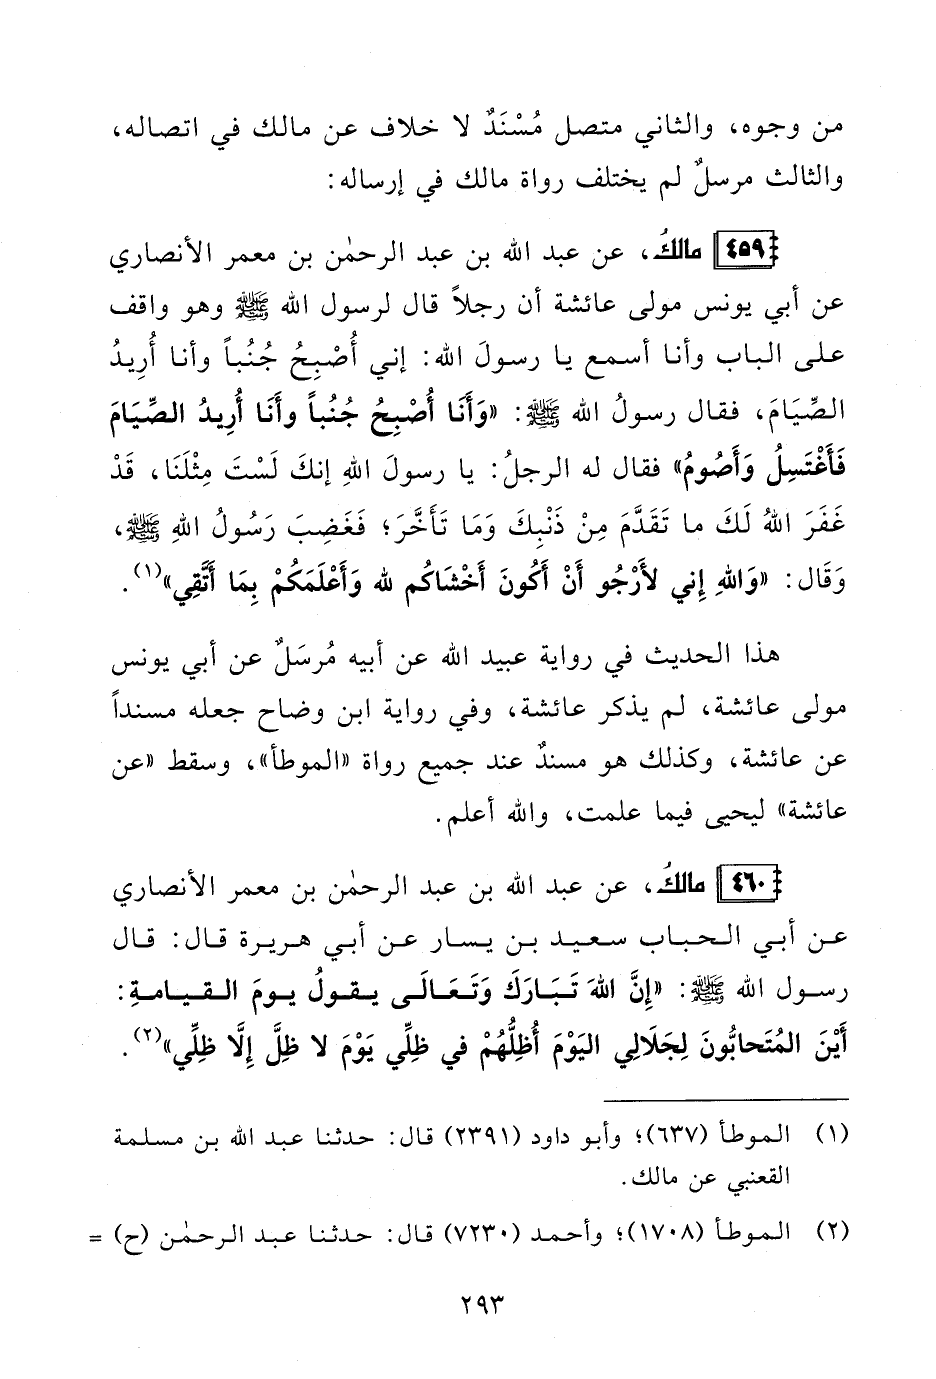 من وجوه، والثاني متصل مُسْنَدٌ لا خلاف عن مالك في اتصاله،
والثالث مرسلٌ لم يختلف رواة مالك في إرساله:
٤٥٩ مالكُ، عن عبد الله بن عبد الرحمٰن بن معمر الأنصاري
عن أبي يونس مولى عائشة أن رجلاً قال لرسول الله ﷺ وهو واقف
على الباب وأنا أسمع يا رسولَ الله: إني أُصْبِحُ جُنُباً وأنا أُرِيدُ
الصِّيَامَ، فقال رسولُ الله ﷺ: «وَأَنَا أُصْبِحُ جُنُباً وأَنَا أُرِيدُ الصِّيَامَ
فَأَغْتَسِلُ وَأَصُومُ» فقال له الرجلُ: يا رسولَ اللهِ إنكَ لَسْتَ مِثْلَنَا، قَدْ
غَفَرَ اللهُ لَكَ ما تَقَدَّمَ مِنْ ذَنْبِكَ وَمَا تَأَخَّرَ؛ فَغَضِبَ رَسُولُ اللهِ ﷺ،
وَقَال: «وَاللهِ إِني لأَرْجُو أَنْ أَكُونَ أَخْشَاكُم لله وَأَعْلَمَكُمْ بِمَا أَتَّقِي»(١).
هذا الحديث في رواية عبيد الله عن أبيه مُرسَلٌ عن أبي يونس
مولى عائشة، لم يذكر عائشة، وفي رواية ابن وضاح جعله مسنداً
عن عائشة، وكذلك هو مسندٌ عند جميع رواة «الموطأ»، وسقط «عن
عائشة» ليحيى فيما علمت، والله أعلم.
٤٦٠ مالكُ، عن عبد الله بن عبد الرحمٰن بن معمر الأنصاري
عن أبي الحباب سعيد بن يسار عن أبي هريرة قال: قال
رسول الله ﷺ: «إِنَّ اللهَ تَبَارَكَ وَتَعَالَى يقولُ يومَ القيامةِ:
أَيْنَ المُتَحابُّونَ لِجَلَالِي اليَوْمَ أُظِلُّهُمْ في ظِلِّي يَوْمَ لا ظِلَّ إِلَّا ظِلِّي»(٢).
(١) الموطأ (٦٣٧)؛ وأبو داود (٢٣٩١) قال: حدثنا عبد الله بن مسلمة
القعنبي عن مالك.
(٢) الموطأ (١٧٠٨)؛ وأحمد (٧٢٣٠) قال: حدثنا عبد الرحمٰن (ح) =
٢٩٣